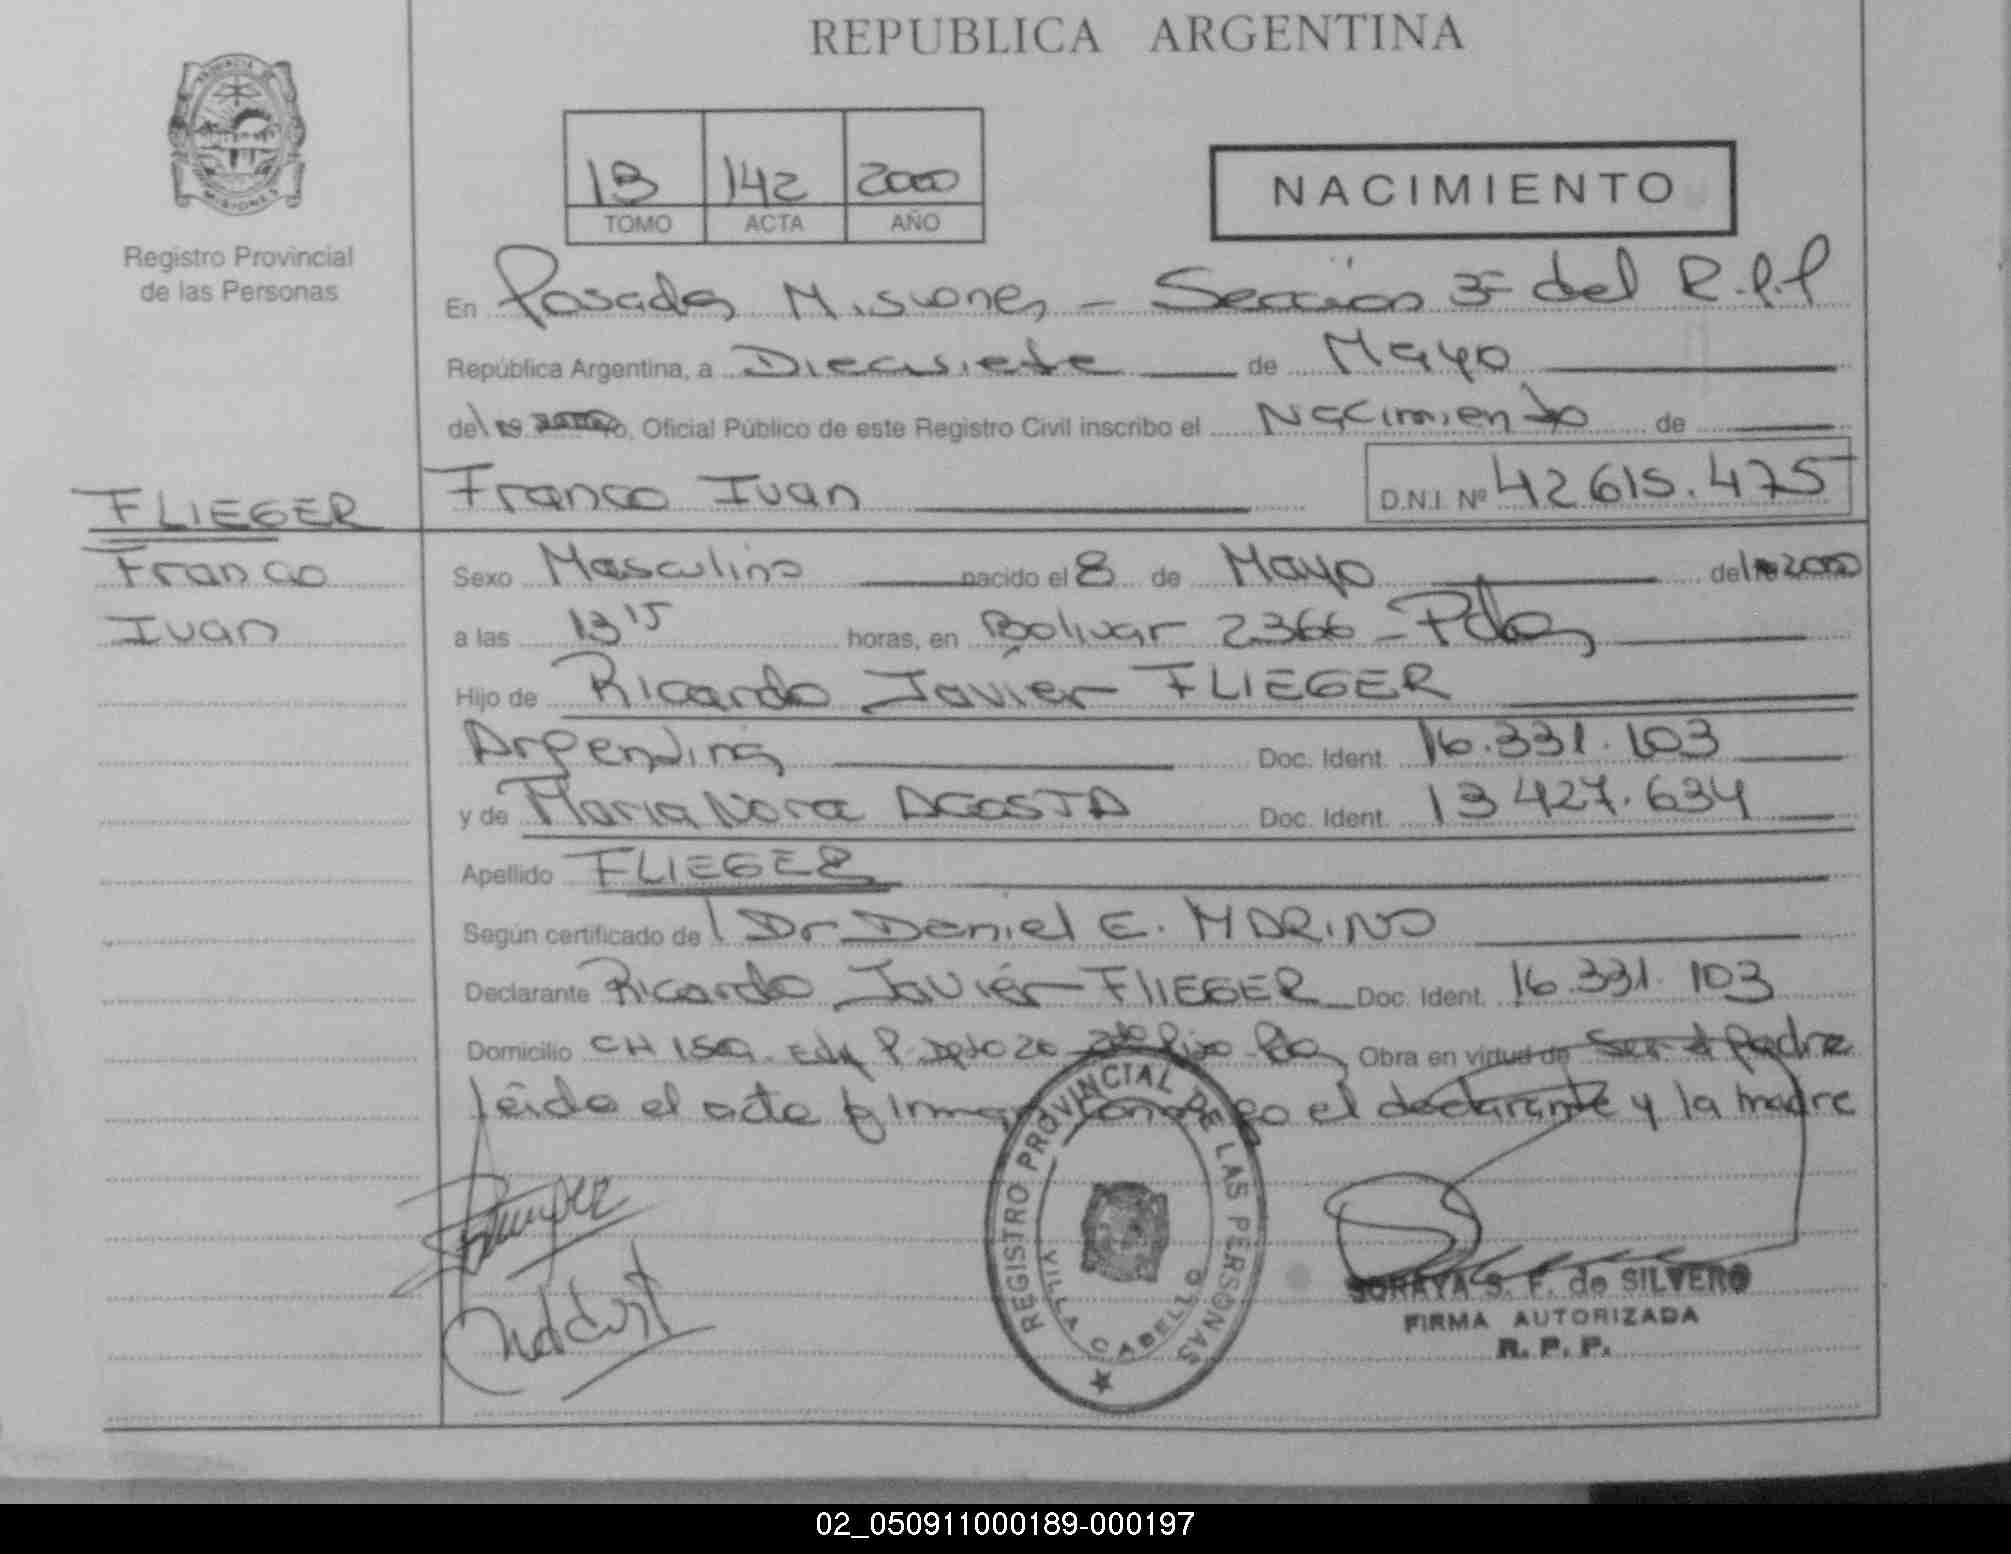 REPUBLICA ARGENTINA
PROVINCIA DE
MISIONES
Registro Provincial
de las Personas
13 142 2000
TOMO ACTA AÑO
NACIMIENTO
En Posadas Misiones - Sección 3ª del R.P.P
República Argentina, a Diecisiete de Mayo
del 2000, Oficial Público de este Registro Civil inscribo el Nacimiento de
FLIEGER
Franco Ivan
Franco Ivan D.N.I. Nº 42615.475
Sexo Masculino nacido el 8 de Mayo del 2000
a las 13 15 horas, en Bolivar 2366 - Pdas
Hijo de Ricardo Javier FLIEGER
Argentina Doc. Ident. 16.331.103
y de Maria Nora ACOSTA Doc. Ident. 13 427.634
Apellido FLIEGER
Según certificado de l Dr Daniel E. MARINO
Declarante Ricardo Javier FLIEGER Doc. Ident. 16.331.103
Domicilio CH 150 Edif P. Dpto 20 2do Piso Pdas Obra en virtud de Ser el Padre
leida el acta firman conmigo el declarante y la madre
REGISTRO PROVINCIAL DE LAS PERSONAS
VILLA CABELLO
SORAYA S. F. de SILVERO
FIRMA AUTORIZADA
R. P. P.
02_050911000189-000197